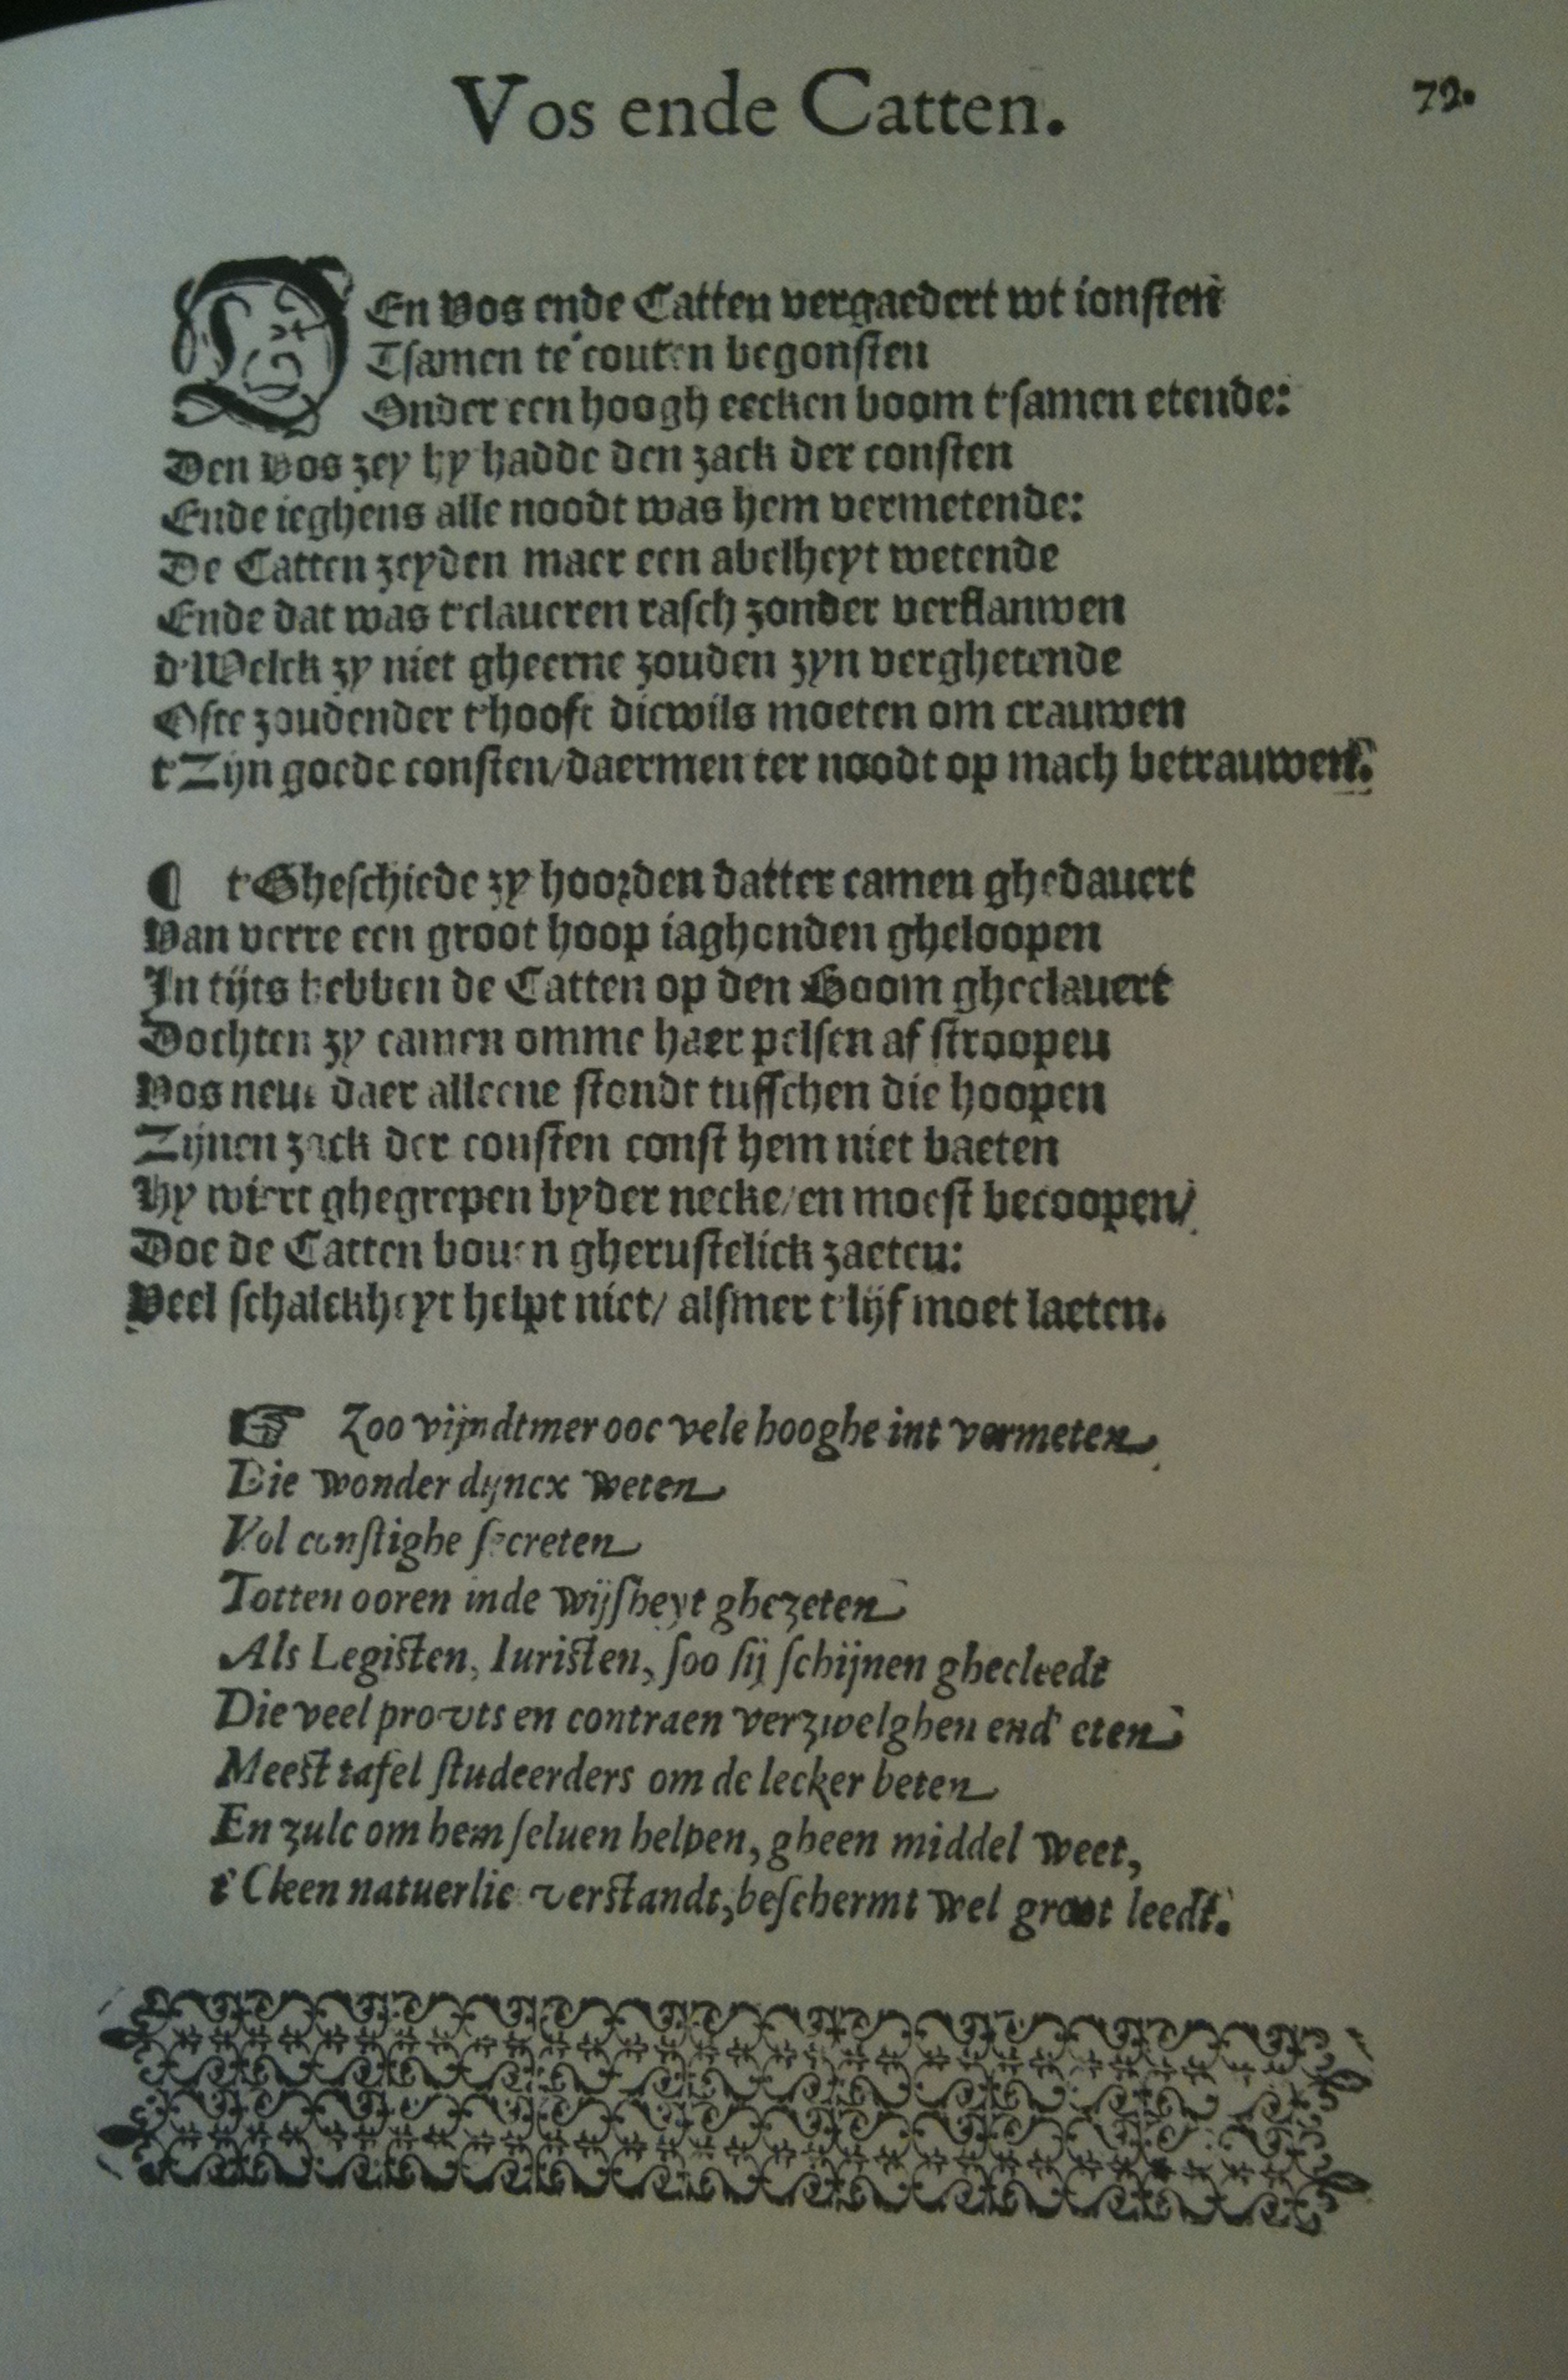 Vos ende Catten.
72.
DEn Vos ende Catten vergaedert wt ionsten
Tsamen te couten begonsten
Onder een hoogh eecken boom t'samen etende:
Den Vos zey hy hadde den zack der consten
Ende ieghens alle noodt was hem vermetende:
De Catten zeyden maer een abelheyt wetende
Ende dat was t'claueren rasch zonder verflauwen
d'Welck zy niet gheerne zouden zyn verghetende
Ofte zoudender t'hooft dicwils moeten om crauwen
t'Zijn goede consten/daermen ter noodt op mach betrauwen.
t'Gheschiede zy hoorden datter camen ghedauert
Van verre een groot hoop iaghonden gheloopen
In tijts hebben de Catten op den Boom gheclauert
Dochten zy camen omme haer pelsen af stroopen
Vos neue daer alleene stondt tusschen die hoopen
Zijnen zack der consten const hem niet baeten
Hy wiert ghegrepen byder necke/en moest becoopen/
Doe de Catten bouen gherustelick zaeten:
Veel schalckheyt helpt niet/ alsmer t'lijf moet laeten.
☞ Zoo vijndtmer ooc vele hooghe int vermeten
Die wonder dyncx weten
Vol constighe secreten
Totten ooren inde wijsheyt ghezeten
Als Legisten, Iuristen, soo sij schijnen ghecleedt
Die veel prouts en contraen verzwelghen end' eten
Meest tafel studeerders om de lecker beten
En zulc om hem seluen helpen, gheen middel weet,
t'Cleen natuerlic verstandt, beschermt wel groot leedt.